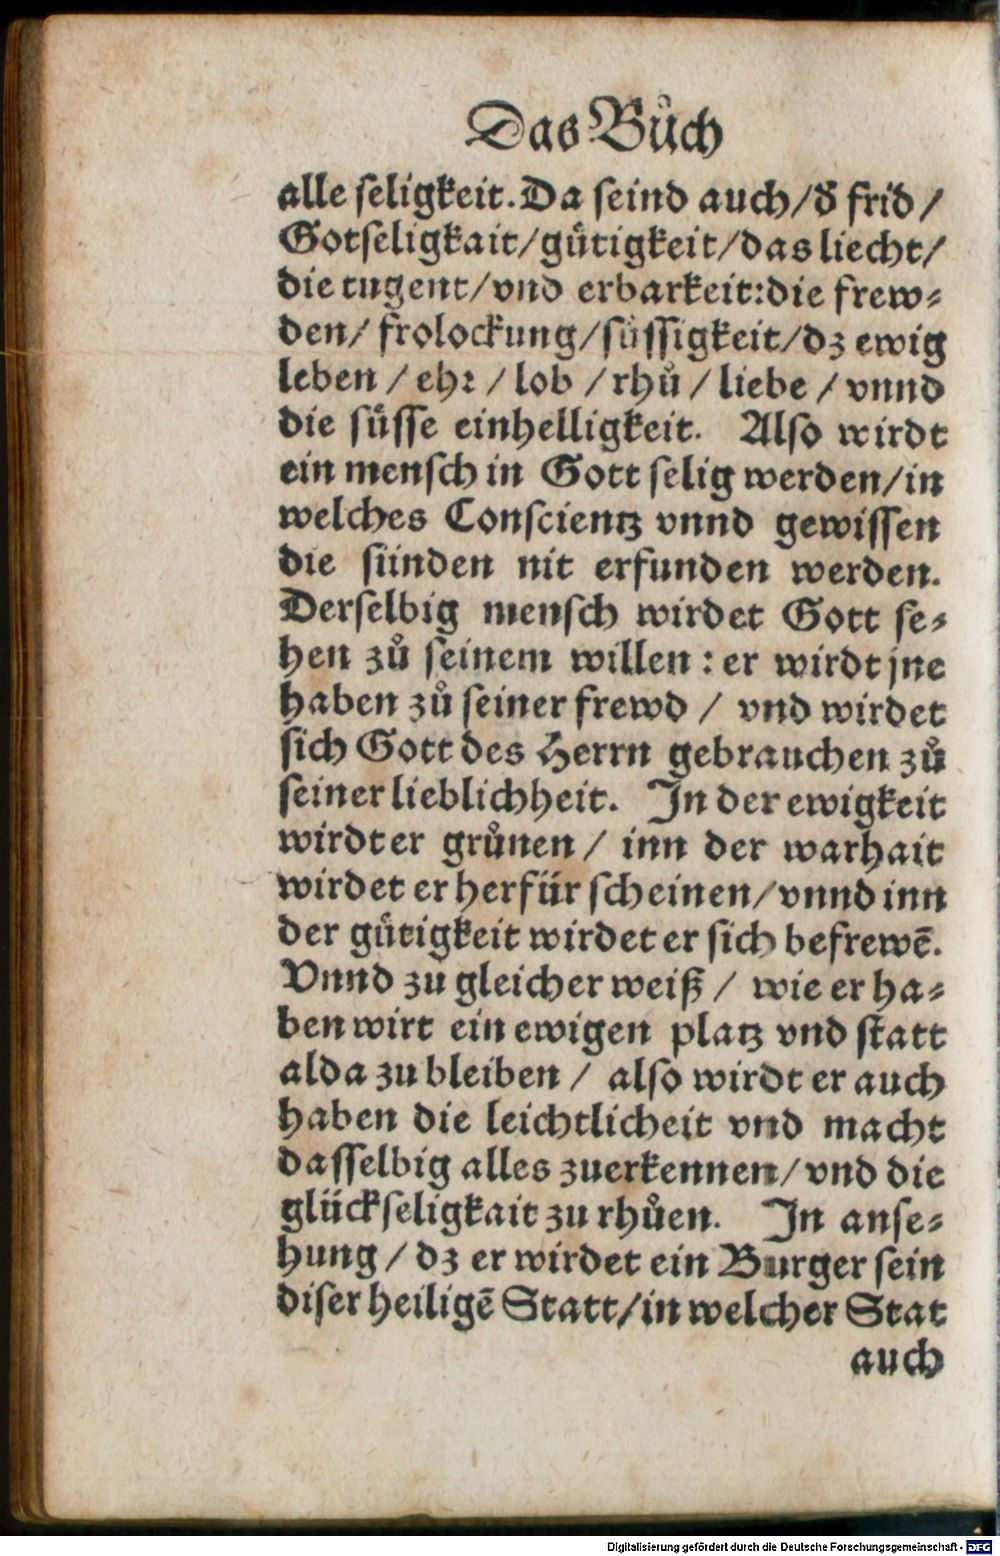 Das Bůch
alle seligkeit. Da seind auch/ď frid/
Gotseligkait/gůtigkeit/das liecht/
die tugent/vnd erbarkeit: die frew⸗
den/ frolockung/süssigkeit/dz ewig
leben / ehꝛ / lob / rhů / liebe / vnnd
die süsse einhelligkeit. Also wirdt
ein mensch in Gott selig werden/in
welches Conscientz vnnd gewissen
die sünden nit erfunden werden.
Derselbig mensch wirdet Gott se⸗
hen zů seinem willen : er wirdt jne
haben zů seiner frewd / vnd wirdet
sich Gott des Herrn gebrauchen zů
seiner lieblichheit. In der ewigkeit
wirdt er grůnen / inn der warhait
wirdet er herfür scheinen/vnnd inn
der gůtigkeit wirdet er sich befrewē.
Vnnd zu gleicher weiß / wie er ha⸗
ben wirt ein ewigen platz vnd statt
alda zu bleiben / also wirdt er auch
haben die leichtlicheit vnd macht
dasselbig alles zuerkennen/vnd die
glückseligkait zu rhůen. In anse⸗
hung / dz er wirdet ein Burger sein
diser heiligē Statt/in welcher Stat
auch
Digitalisierung gefördert durch die Deutsche Forschungsgemeinschaft - DFG